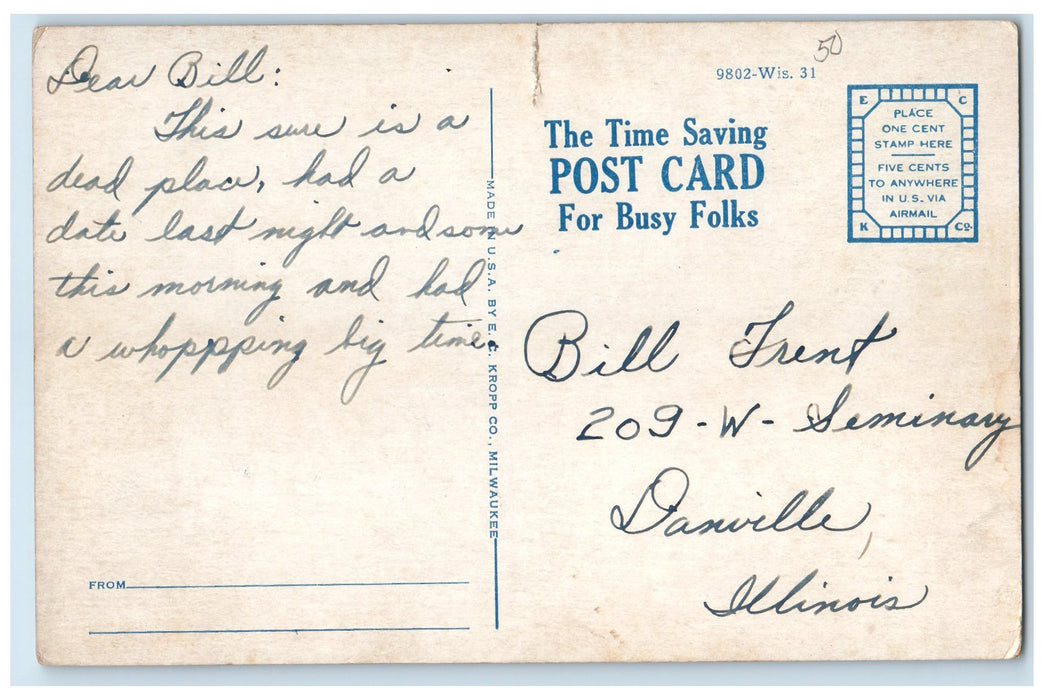 Dear Bill:
This sure is a
dead place, had a
date last night and some
this morning and had
a whoppping big time.
FROM
MADE IN U.S.A. BY E. C. KROPP CO., MILWAUKEE
50
9802-Wis. 31
The Time Saving
POST CARD
For Busy Folks
E C
PLACE
ONE CENT
STAMP HERE
FIVE CENTS
TO ANYWHERE
IN U.S. VIA
AIRMAIL
K Co.
Bill Trent
209-W- Seminary
Danville,
Illinois